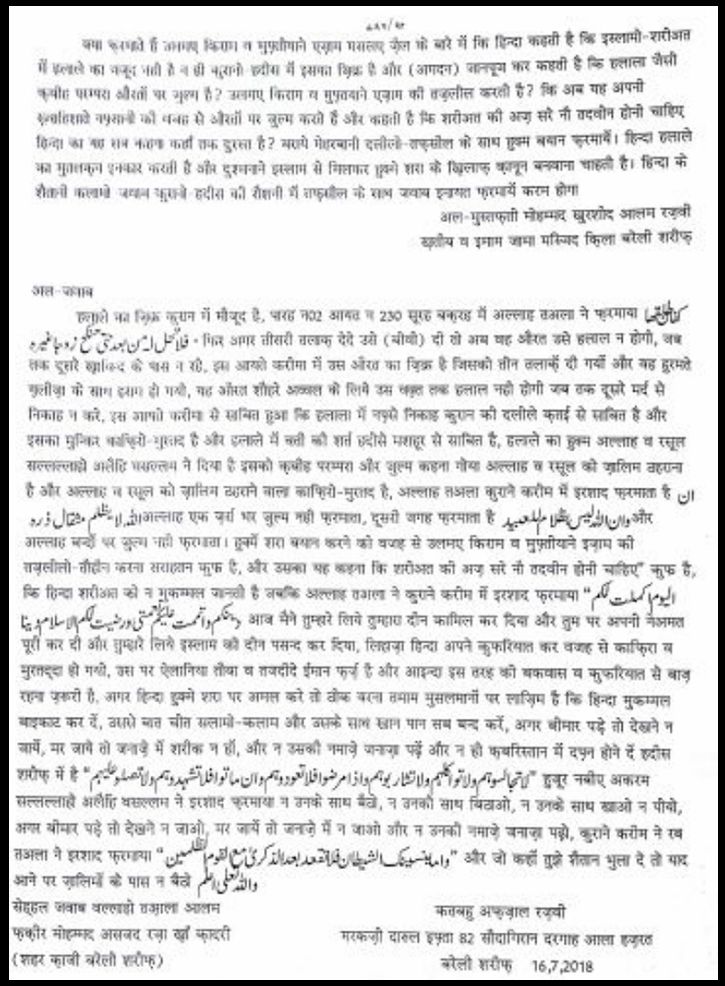 ۷۸۶/۹۲
क्या फ़रमाते हैं उलमाए किराम व मुफ़्तीयाने एज़ाम मसलए ज़ैल के बारे में कि हिन्दा कहती है कि इस्लामी-शरीअत
में हलाले का वजूद नही है न ही कुरानो-हदीस में इसका ज़िक्र है और (अमदन) जानबूझ कर कहती है कि हलाला जैसी
क़बीह परम्परा औरतों पर ज़ुल्म है? उलमाए किराम व मुफ़्तयाने एज़ाम की तज़लील करती है? कि अब यह अपनी
नफ़सानी की वजह से औरतों पर ज़ुल्म करते हैं और कहती है कि शरीअत की अज़ सरे नौ तदवीन होनी चाहिए
हिन्दा का यह सब कहना कहाँ तक दुरूस्त है? बराये मेहरबानी दलीलो-तफ़्सील के साथ हुक्म बयान फ़रमायें। हिन्दा हलाले
का मुतलक़न इनकार करती है और दुश्मनाने इस्लाम से मिलकर हुक्मे शरा के ख़िलाफ़ क़ानून बनवाना चाहती है। हिन्दा के
शैतानी कलामो जवाब कुरानो-हदीस की रौशनी में तफ़्सील के साथ जवाब इनायत फ़रमायें करम होगा
अल-मुस्तफ़्ती मोहम्मद खुरशीद आलम रज़वी
ख़तीब व इमाम जामा मस्जिद क़िला बरेली शरीफ़
अल-जवाब
हलाले का ज़िक्र कुरान में मौजूद है, पारह न02 आयत न 230 सूरह बकरह में अल्लाह तआला ने फ़रमाया فان طلقها
فلا تحل له من بعد حتى تنكح زوجا غيره फिर अगर तीसरी तलाक़ देदे उसे (बीवी) दी तो अब वह औरत उसे हलाल न होगी, जब
तक दूसरे ख़ाविन्द के पास न रहे, इस आयते करीमा में उस औरत का ज़िक्र है जिसको तीन तलाकें दी गयीं और वह हुरमते
ग़लीज़ा के साथ हराम हो गयी, यह औरत शौहरे अव्वल के लिये उस वक़्त तक हलाल नही होगी जब तक दूसरे मर्द से
निकाह न करे, इस आयते करीमा से साबित हुआ कि हलाला में नफ़्से निकाह कुरान की दलीले क़तई से साबित है और
इसका मुन्किर काफ़िरो-मुरतद है और हलाले में वती की शर्त हदीसे मशहूर से साबित है, हलाले का हुक्म अल्लाह व रसूल
सल्लल्लाहो अलैहि वसल्लम ने दिया है इसको क़बीह परम्परा और ज़ुल्म कहना गोया अल्लाह व रसूल को ज़ालिम ठहराना
है और अल्लाह व रसूल को ज़ालिम ठहराने वाला काफ़िरो-मुरतद है, अल्लाह तआला कुराने करीम में इरशाद फ़रमाता है ان
الله لا يظلم مثقال ذرة अल्लाह एक ज़र्रा भर ज़ुल्म नही फ़रमाता, दूसरी जगह फ़रमाता है وان الله ليس بظلام للعبيد और
अल्लाह बन्दों पर ज़ुल्म नही फ़रमाता। हुक्में शरा बयान करने की वजह से उलमाए किराम व मुफ़्तीयाने इज़ाम की
तज़लीलो-तौहीन करना सराहतन कुफ़्र है, और उसका यह कहना कि शरीअत की अज़ सरे नौ तदवीन होनी चाहिए" कुफ़्र है,
कि हिन्दा शरीअत को न मुकम्मल जानती है जबकि अल्लाह तआला ने कुराने करीम में इरशाद फ़रमाया "اليوم اكملت لكم
دينكم واتممت عليكم نعمتى ورضيت لكم الاسلام دينا आज मैने तुम्हारे लिये तुम्हारा दीन कामिल कर दिया और तुम पर अपनी नेअमत
पूरी कर दी और तुम्हारे लिये इस्लाम को दीन पसन्द कर दिया, लिहाज़ा हिन्दा अपने कुफ़रियात कर वजह से काफ़िरा व
मुरतद्दा हो गयी, उस पर ऐलानिया तौबा व तजदीदे ईमान फ़र्ज़ है और आइन्दा इस तरह की बकवास व कुफ़रियात से बाज़
रहना ज़रूरी है, अगर हिन्दा हुक्मे शरा पर अमल करे तो ठीक वरना तमाम मुसलमानों पर लाज़िम है कि हिन्दा मुकम्मल
बाइकाट कर दें, उससे बात चीत सलामो-कलाम और उसके साथ खान पान सब बन्द करें, अगर बीमार पड़े तो देखने न
जायें, मर जाये तो जनाज़े में शरीक न हों, और न उसकी नमाज़े जनाज़ा पढ़ें और न ही कब्रिस्तान में दफ़्न होने दें हदीस
शरीफ़ में है "لا تجالسوهم ولا تواكلوهم ولا تشاربوهم واذا مرضوا فلا تعودوهم وان ماتوا فلا تشهدوهم ولا تصلوا عليهم" हुज़ूर नबीए अकरम
सल्लल्लाहो अलैहि वसल्लम ने इरशाद फ़रमाया न उनके साथ बैठो, न उनको साथ बिठाओ, न उनके साथ खाओ न पीयो,
अगर बीमार पड़े तो देखने न जाओ, मर जायें तो जनाज़े में न जाओ और न उनकी नमाज़े जनाज़ा पढ़ो, कुराने करीम ने रब
तआला ने इरशाद फ़रमाया "واما ينسينك الشيطان فلا تقعد بعد الذكرى مع القوم الظلمين" और जो कहीं तुझे शैतान भुला दे तो याद
आने पर ज़ालिमों के पास न बैठो والله تعالى اعلم
सेहहल जवाब वल्लाहो तआला आलम
फ़क़ीर मोहम्मद असजद रज़ा खाँ क़ादरी
(शहर क़ाज़ी बरेली शरीफ़)
कतबहु अफ़ज़ाल रज़वी
मरकज़ी दारुल इफ़्ता 82 सौदागिरान दरगाह आला हज़रत
बरेली शरीफ़ 16,7,2018